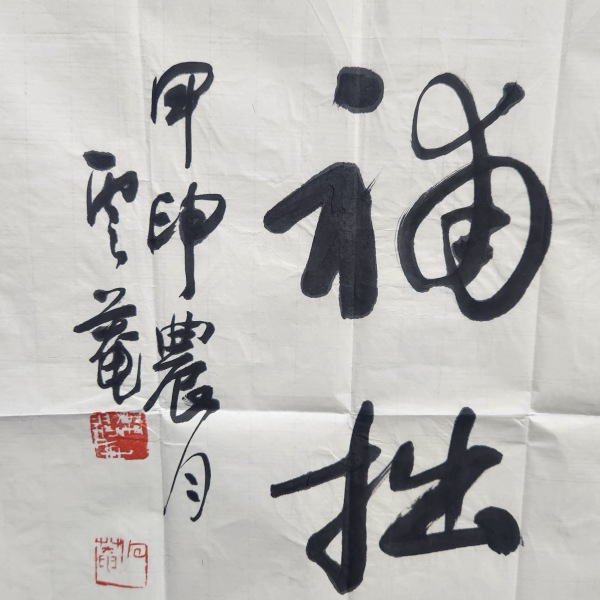 補拙
甲申農月
雲菴